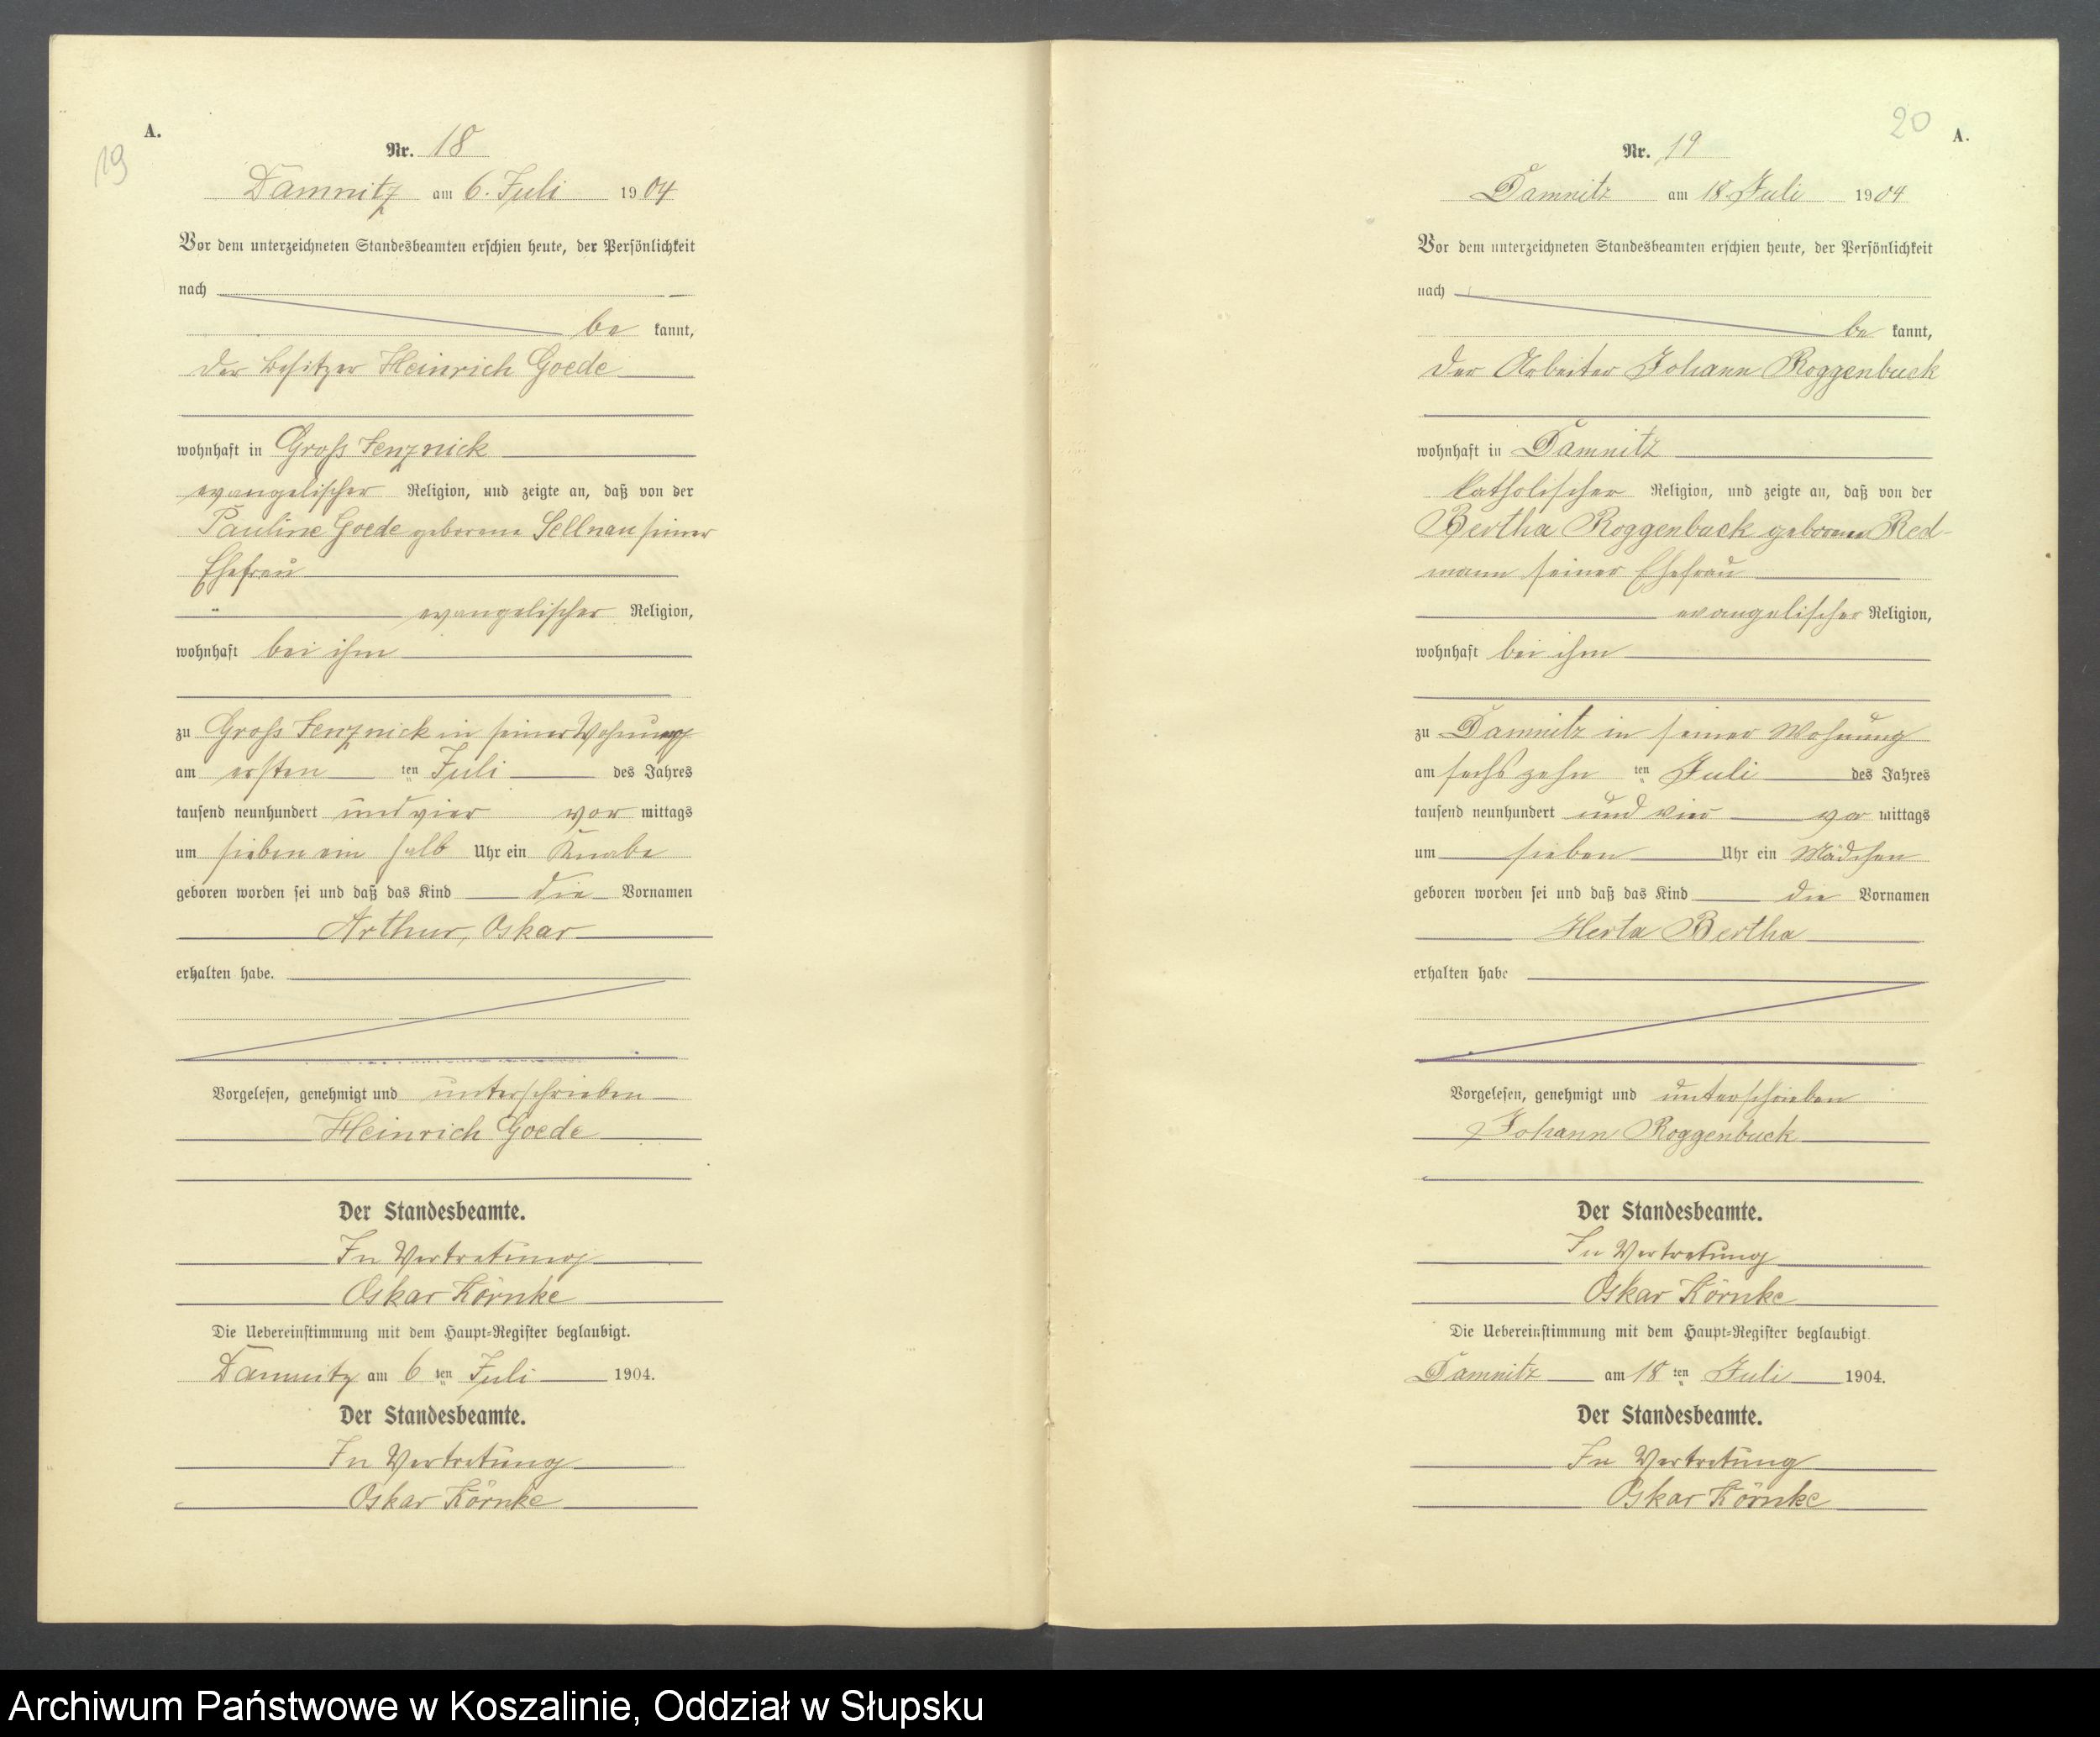 A.
19
Nr. 18
Damnitz am 6. Juli 1904
Vor dem unterzeichneten Standesbeamten erschien heute, der Persönlichkeit
nach
be kannt,
der Besitzer Heinrich Goede
wohnhaft in Gross Jenznick
evangelischer Religion, und zeigte an, daß von der
Pauline Goede geborene Sellnau seiner
Ehefrau
evangelischer Religion,
wohnhaft bei ihm
zu Gross Jenznick in seiner Wohnung
am ersten ten Juli des Jahres
tausend neunhundert und vier vor mittags
um sieben ein halb Uhr ein Knabe
geboren worden sei und daß das Kind die Vornamen
Arthur, Oskar
erhalten habe.
Vorgelesen, genehmigt und unterschrieben
Heinrich Goede
Der Standesbeamte.
In Vertretung
Oskar Körnke
Die Uebereinstimmung mit dem Haupt-Register beglaubigt.
Damnitz am 6 ten Juli 1904.
Der Standesbeamte.
In Vertretung
Oskar Körnke
20
A.
Nr. 19
Damnitz am 18 Juli 1904
Vor dem unterzeichneten Standesbeamten erschien heute, der Persönlichkeit
nach
be kannt,
der Arbeiter Johann Roggenbuck
wohnhaft in Damnitz
katholischer Religion, und zeigte an, daß von der
Bertha Roggenbuck geborene Red-
mann seiner Ehefrau
evangelischer Religion,
wohnhaft bei ihm
zu Damnitz in seiner Wohnung
am sechszehn ten Juli des Jahres
tausend neunhundert und vier vor mittags
um sieben Uhr ein Mädchen
geboren worden sei und daß das Kind die Vornamen
Herta Bertha
erhalten habe
Vorgelesen, genehmigt und unterschrieben
Johann Roggenbuck
Der Standesbeamte.
In Vertretung
Oskar Körnke
Die Uebereinstimmung mit dem Haupt-Register beglaubigt.
Damnitz am 18 ten Juli 1904.
Der Standesbeamte.
In Vertretung
Oskar Körnke
Archiwum Państwowe w Koszalinie, Oddział w Słupsku